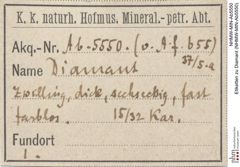 K. k. naturh. Hofmus. Mineral.-petr. Abt.
Akq.-Nr. Ab-5550. (v. A.f. 655)
37/5-a
Name Diamant
Zwilling, dick, sechseckig, fast
farblos. 15/32 Kar.
Fundort
NHMW-MIN-Ab5550
Etiketten zu Diamant (NHMW-MIN-Ab5550)